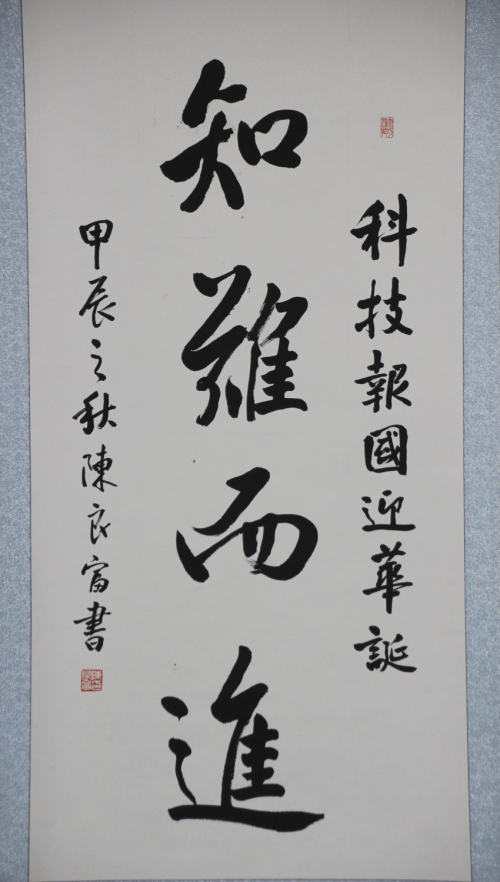 科技報國迎華誕
知難而進
甲辰之秋陳良富書